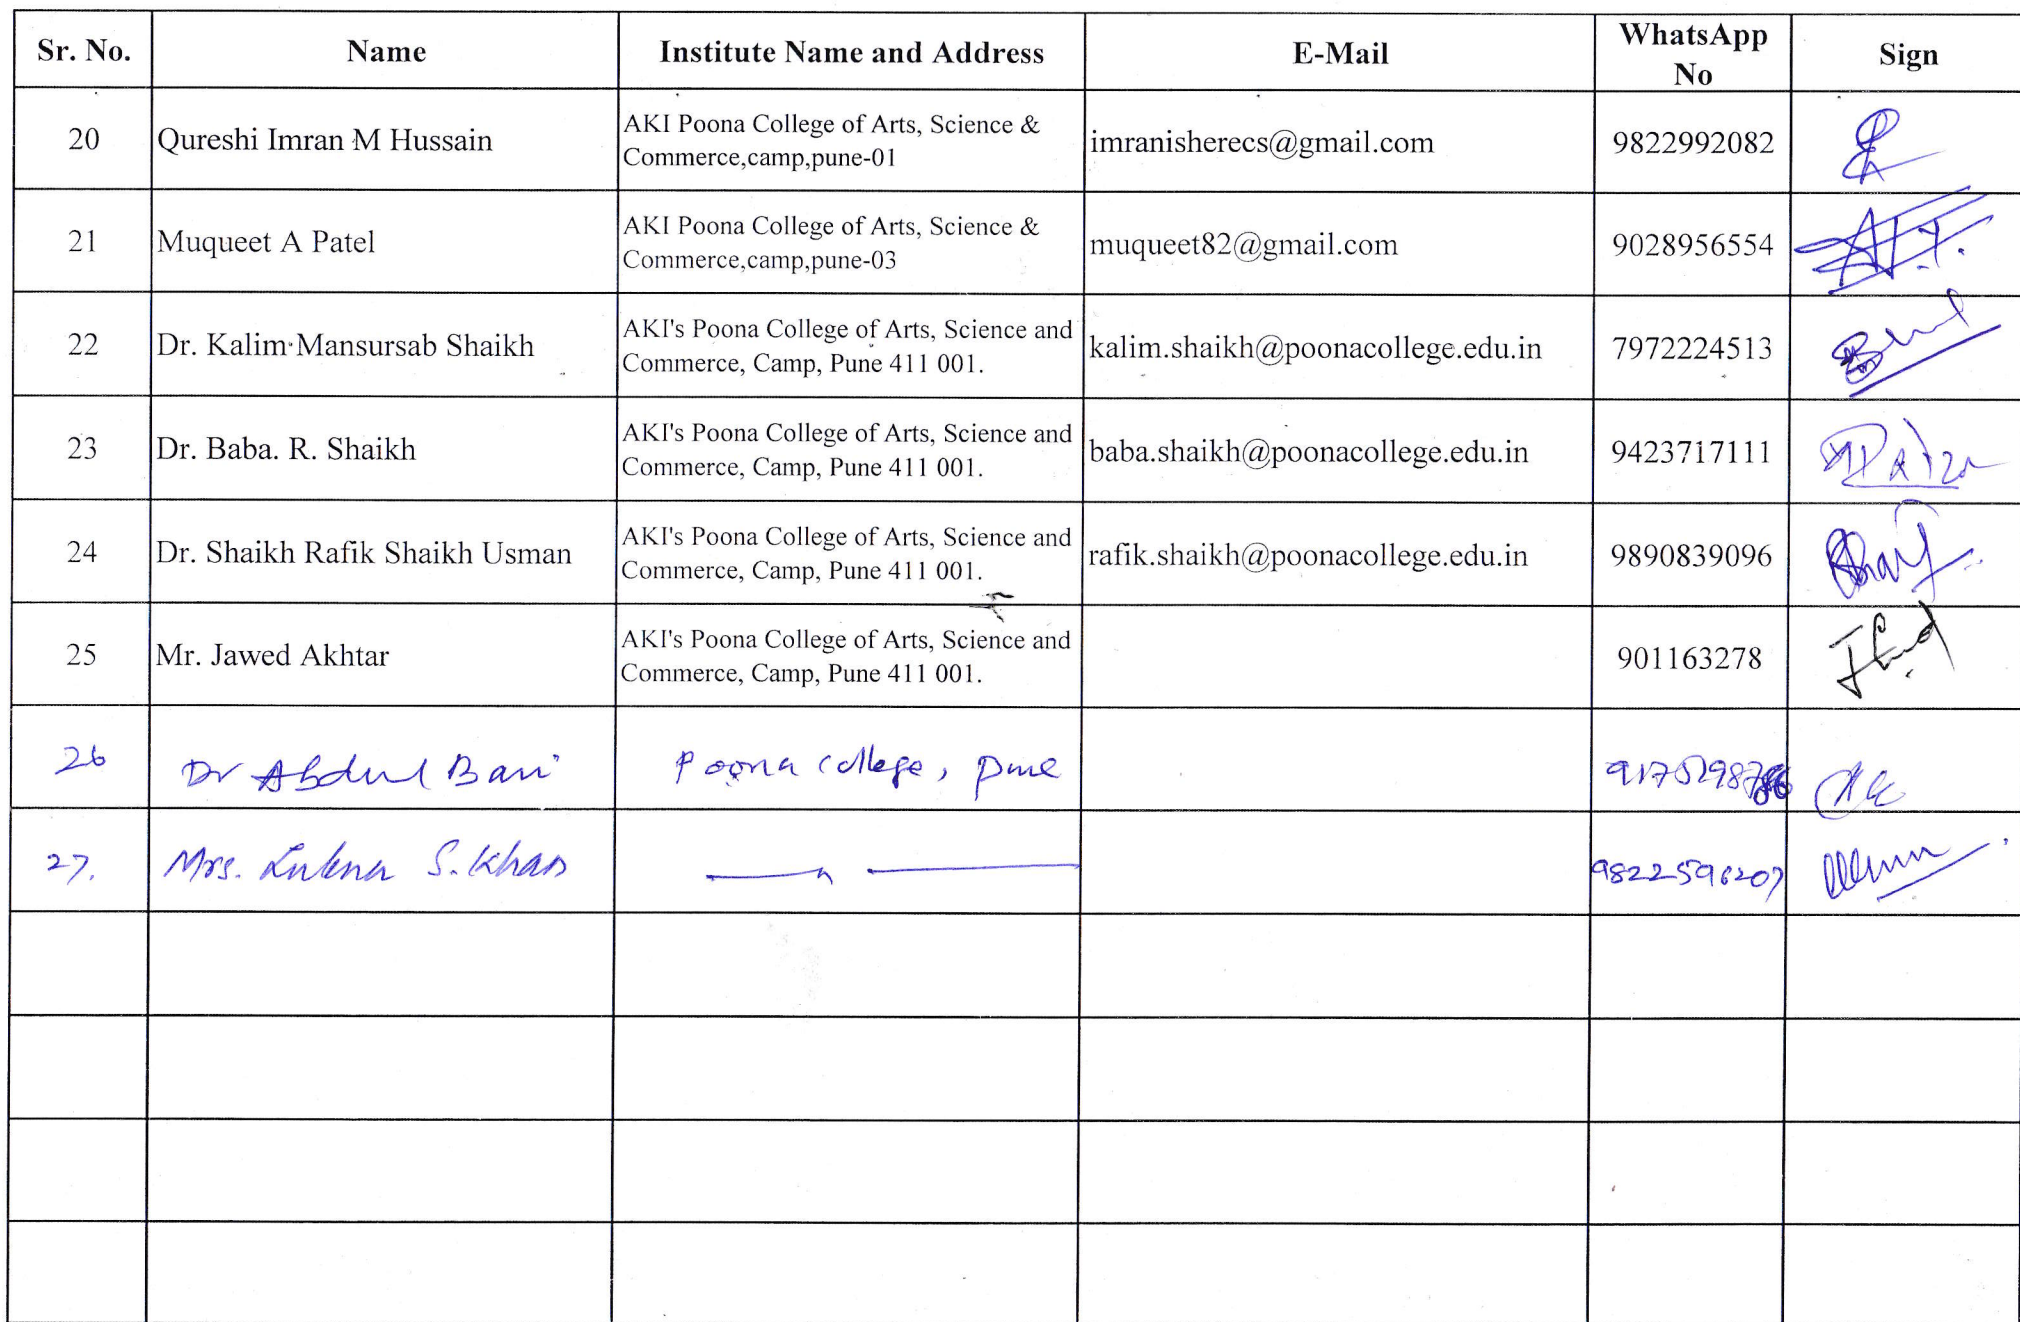 Sr. No. Name Institute Name and Address E-Mail WhatsApp No Sign
20 Qureshi Imran M Hussain AKI Poona College of Arts, Science & Commerce,camp,pune-01 imranisherecs@gmail.com 9822992082
21 Muqueet A Patel AKI Poona College of Arts, Science & Commerce,camp,pune-03 muqueet82@gmail.com 9028956554
22 Dr. Kalim Mansursab Shaikh AKI's Poona College of Arts, Science and Commerce, Camp, Pune 411 001. kalim.shaikh@poonacollege.edu.in 7972224513
23 Dr. Baba. R. Shaikh AKI's Poona College of Arts, Science and Commerce, Camp, Pune 411 001. baba.shaikh@poonacollege.edu.in 9423717111
24 Dr. Shaikh Rafik Shaikh Usman AKI's Poona College of Arts, Science and Commerce, Camp, Pune 411 001. rafik.shaikh@poonacollege.edu.in 9890839096
25 Mr. Jawed Akhtar AKI's Poona College of Arts, Science and Commerce, Camp, Pune 411 001. 901163278
26 Dr Abdul Bari Poona college, pune
27. Mrs. Lubna S. Khan 9822596207